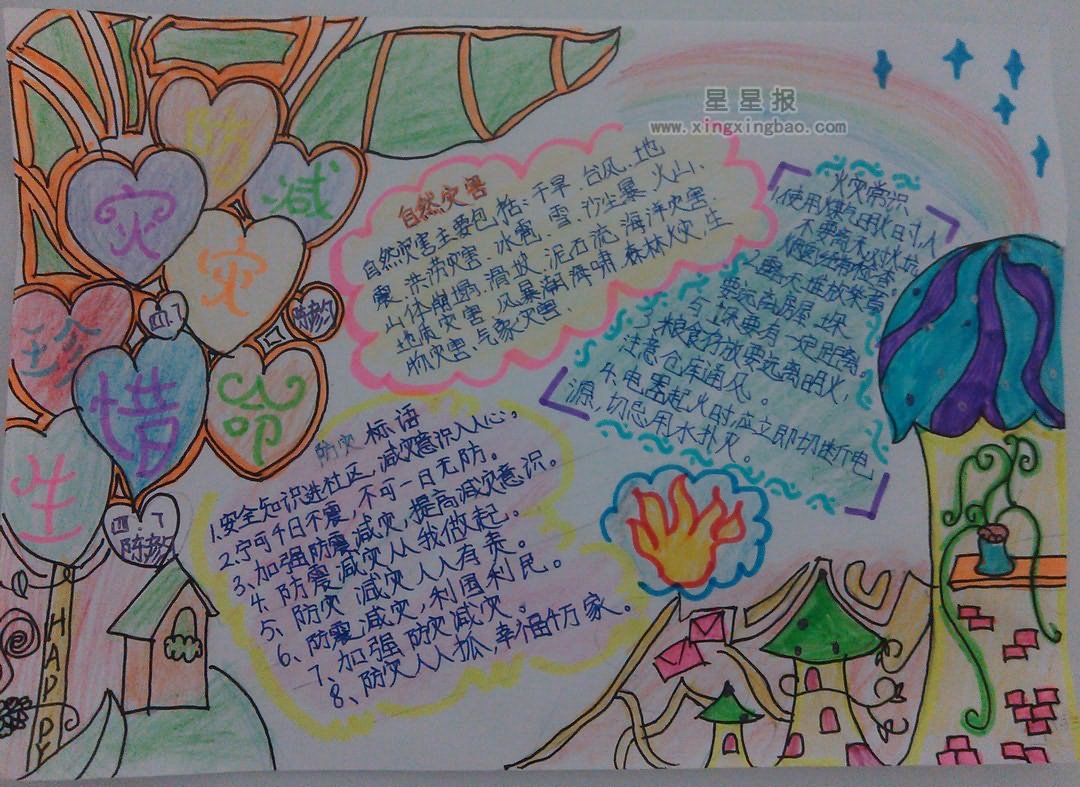 星星报
www.xingxingbao.com
防
减
灾
灾
珍
惜
生
命
四.7
四.7
HAPPY
自然灾害
自然灾害主要包括:干旱、台风、地
震、洪涝灾害、冰雹、雪、沙尘暴、火山、
山体崩塌、滑坡、泥石流、海洋灾害、
地质灾害、风暴潮、海啸、森林火灾、生
物灾害、气象灾害、
火灾常识
使用煤气明火时,人
不要离
堆放柴草
要远离房屋、
与 要有一定距离。
3、粮食存放要远离明火,
注意仓库通风。
4、电器起火时,应立即切断电
源,切忌用水扑灭。
防灾标语
1.安全知识进社区,减灾意识入人心。
2.宁可千日不震,不可一日无防。
3、加强防震减灾,提高减灾意识。
4、防震减灾从我做起。
5、防灾减灾人人有责。
6、防震减灾,利国利民。
7、加强防灾减灾。
8、防灾人人抓,幸福千万家。